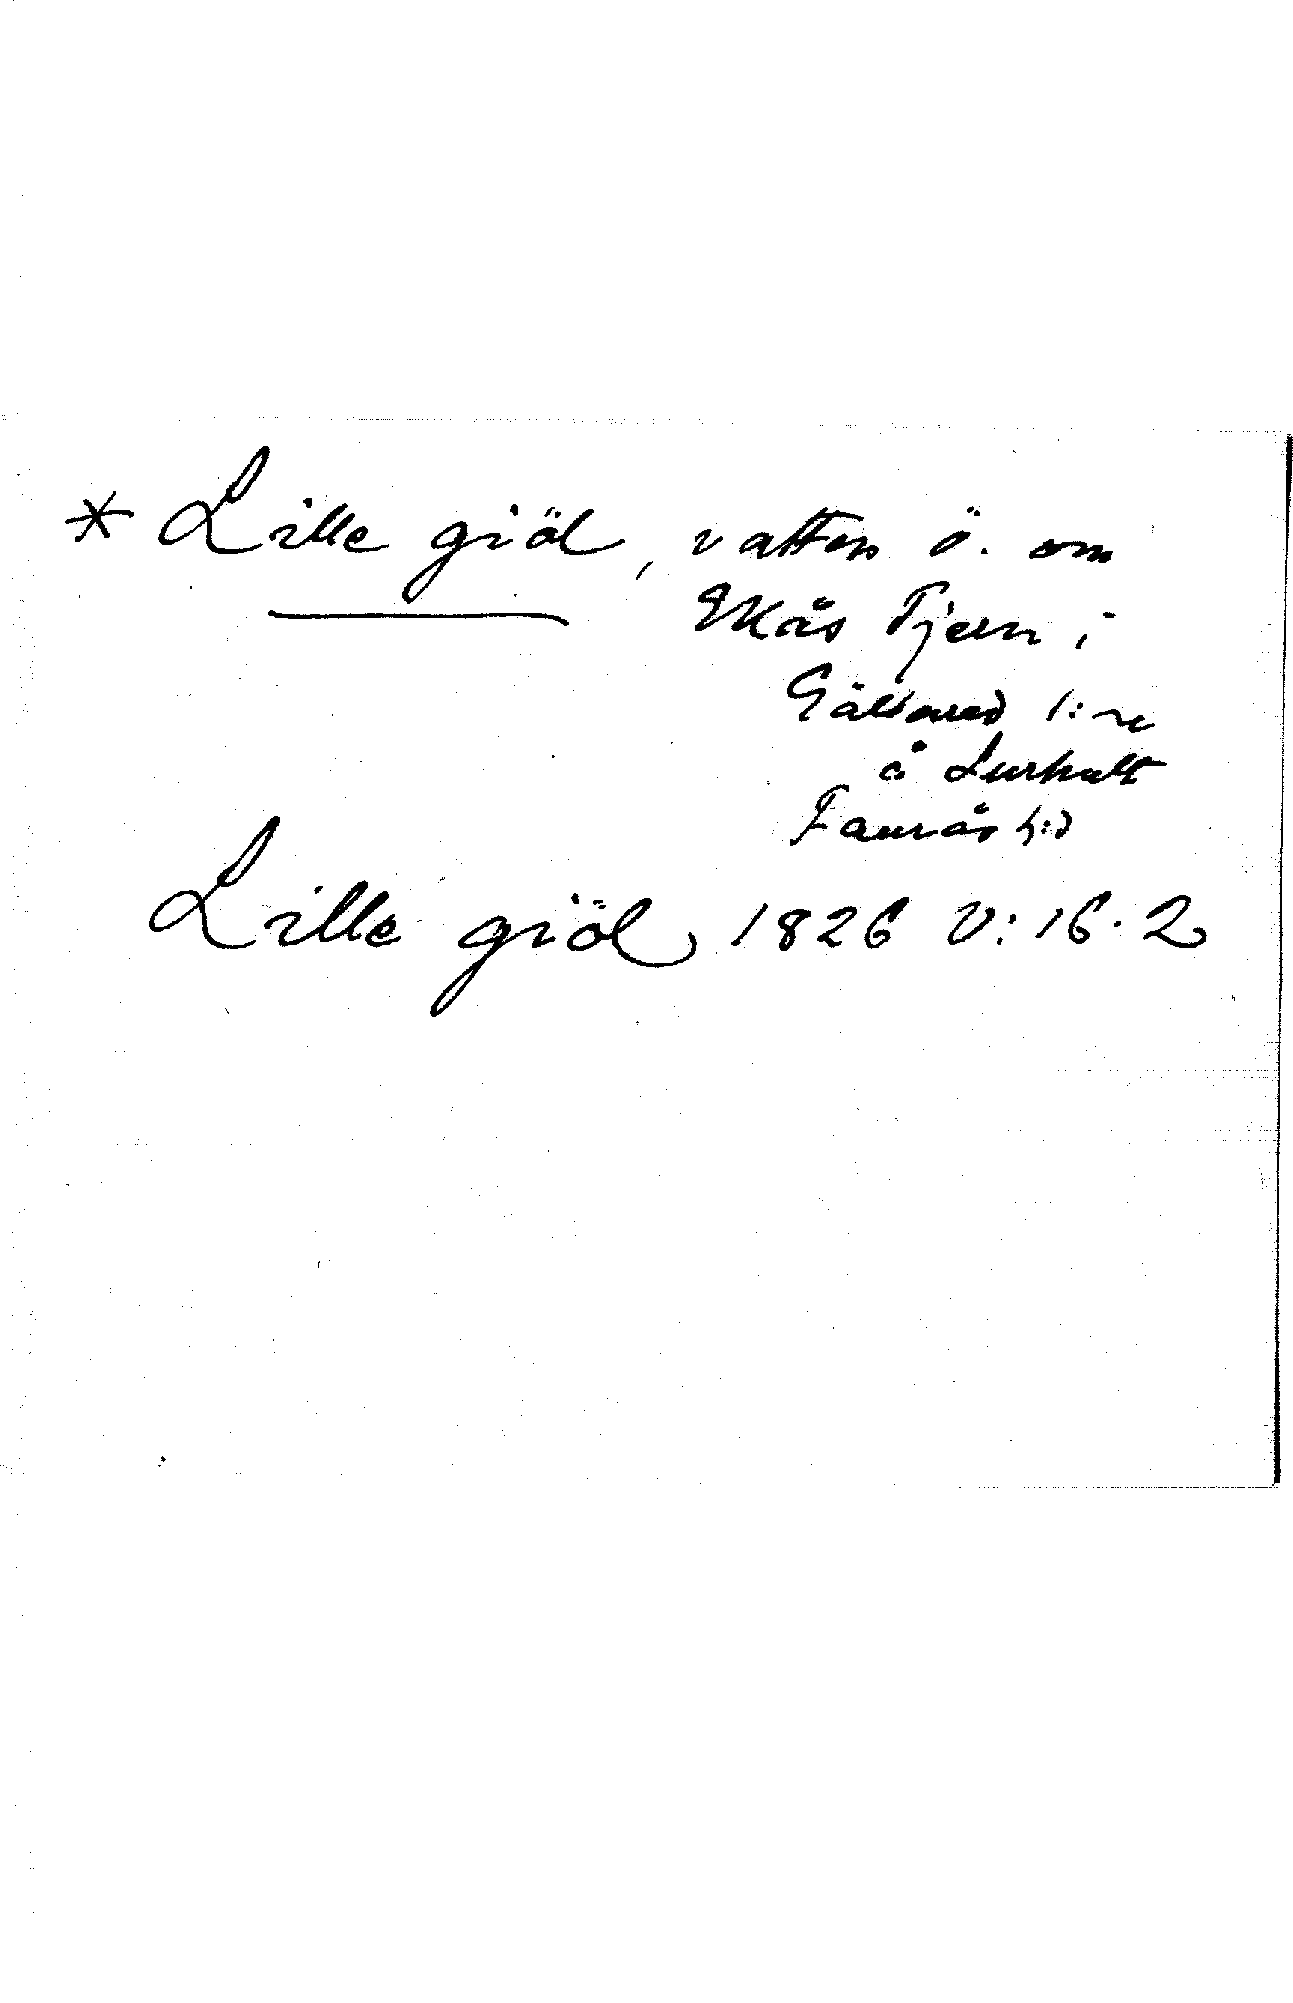 * Lille giöl, vatten ö. om
Ekås Tjern i
Gällared s:n
å Lurhult
Faurås h:d
Lille giöl 1826 V: 16. 2